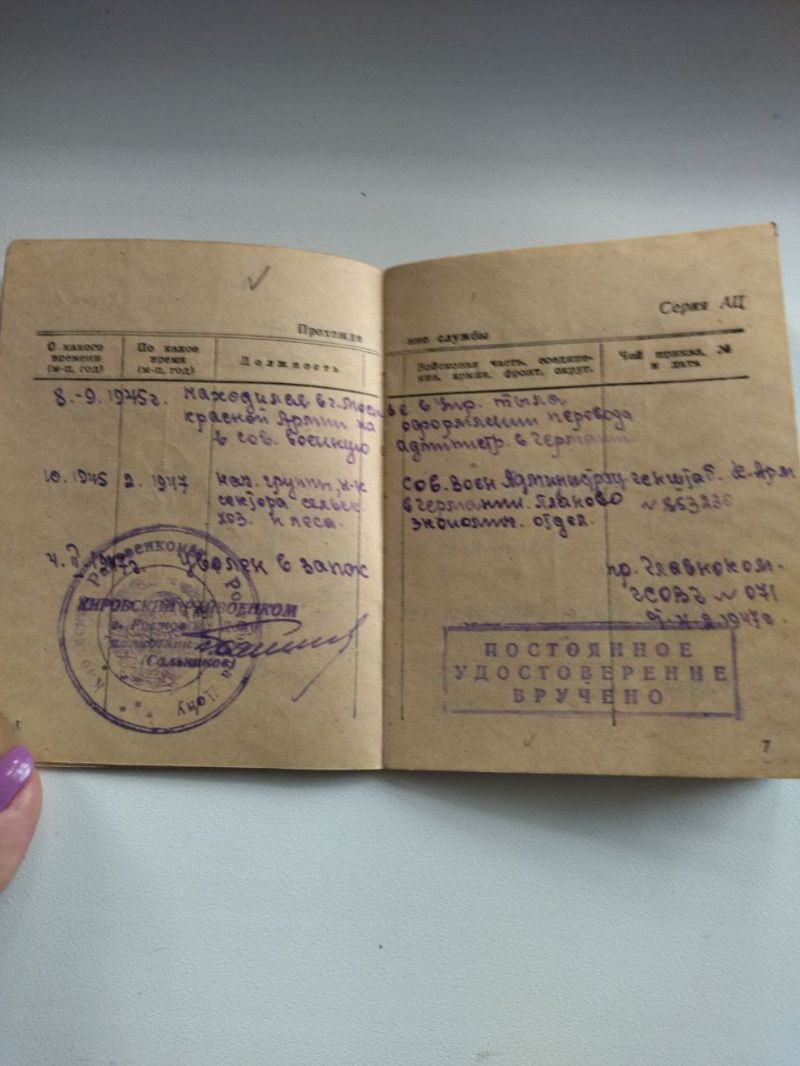 Серия АЦ
Прохожде ние службы
С какого времени (м-ц, год)
По какое время (м-ц, год)
Должность
Войсковая часть, соедине-
ние, армия, фронт, округ.
Чей приказ, №
и дата
8.-9. 1945г. находился в г. Моск ве в Упр. тыла
красной Армии на оформлении перевода
в сов. военную администр. в Германии
10. 1945 2. 1947 нач. группы, н-к сов. воен Администрац. генштаб. Кр. Арм
сектора сельск. в германии. Планово № 853236
хоз. и леса. экономич. отдел.
4. II. 1947г. Уволен в запас пр. Главноком.
ГСОВГ № 071
1947г.
Райвоенкомат
КИРОВСКИЙ РАЙВОЕНКОМ
г. Ростова н/Д
(Сальников)
Дону
ПОСТОЯННОЕ
УДОСТОВЕРЕНИЕ
ВРУЧЕНО
7